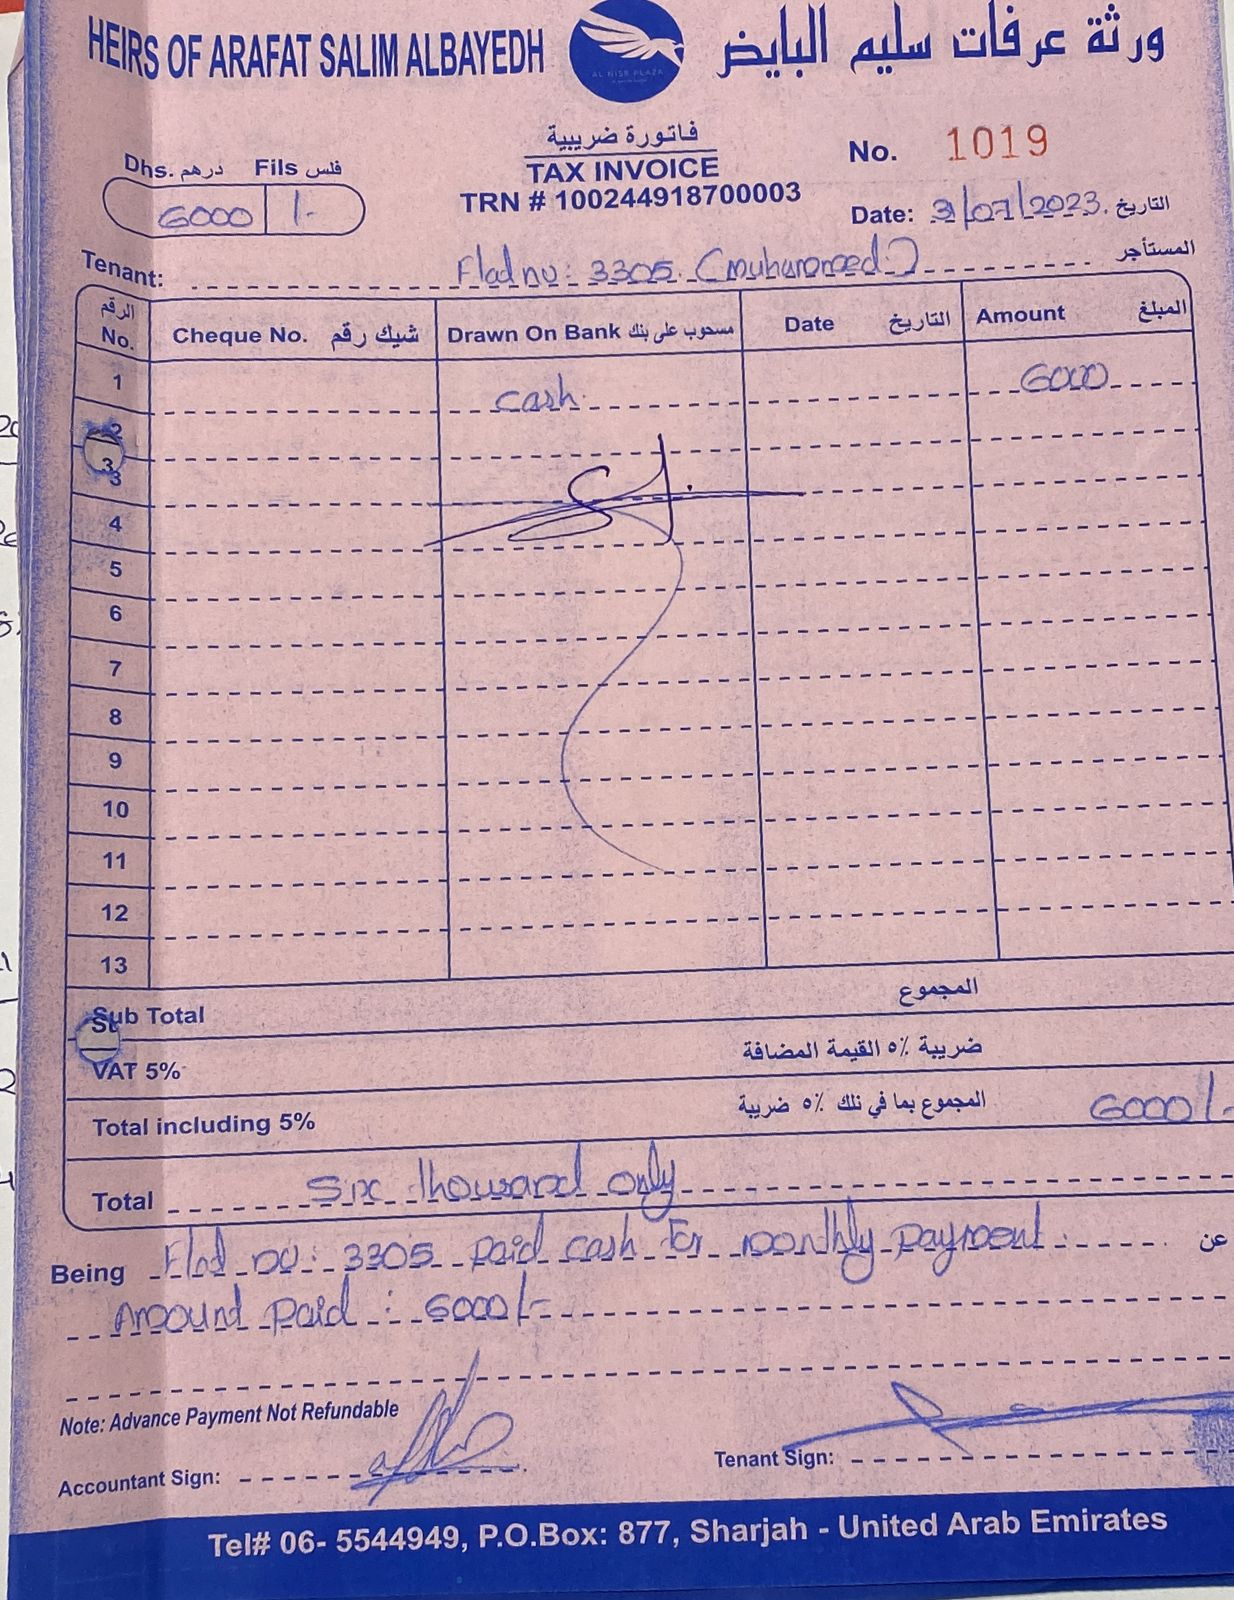 HEIRS OF ARAFAT SALIM ALBAYEDH
AL NISR PLAZA
ورثة عرفات سليم البايض
فاتورة ضريبية
TAX INVOICE
TRN # 100244918700003
No. 1019
Dhs. درهم Fils فلس
6000 /-
Date: 3/07/2023 التاريخ
Tenant: Flad nu: 3305 (muhammed) المستأجر
الرقم No. Cheque No. شيك رقم Drawn On Bank مسحوب على بنك Date التاريخ Amount المبلغ
1 cash 6000
2
3
3
4
5
6
7
8
9
10
11
12
13
Sub Total المجموع
VAT 5% ضريبة ٥٪ القيمة المضافة
Total including 5% المجموع بما في ذلك ٥٪ ضريبة 6000/-
Total Six thousand only
Being Flad no: 3305 paid cash for monthly payment. عن
Amount paid : 6000/-
Note: Advance Payment Not Refundable
Accountant Sign:
Tenant Sign:
Tel# 06- 5544949, P.O.Box: 877, Sharjah - United Arab Emirates